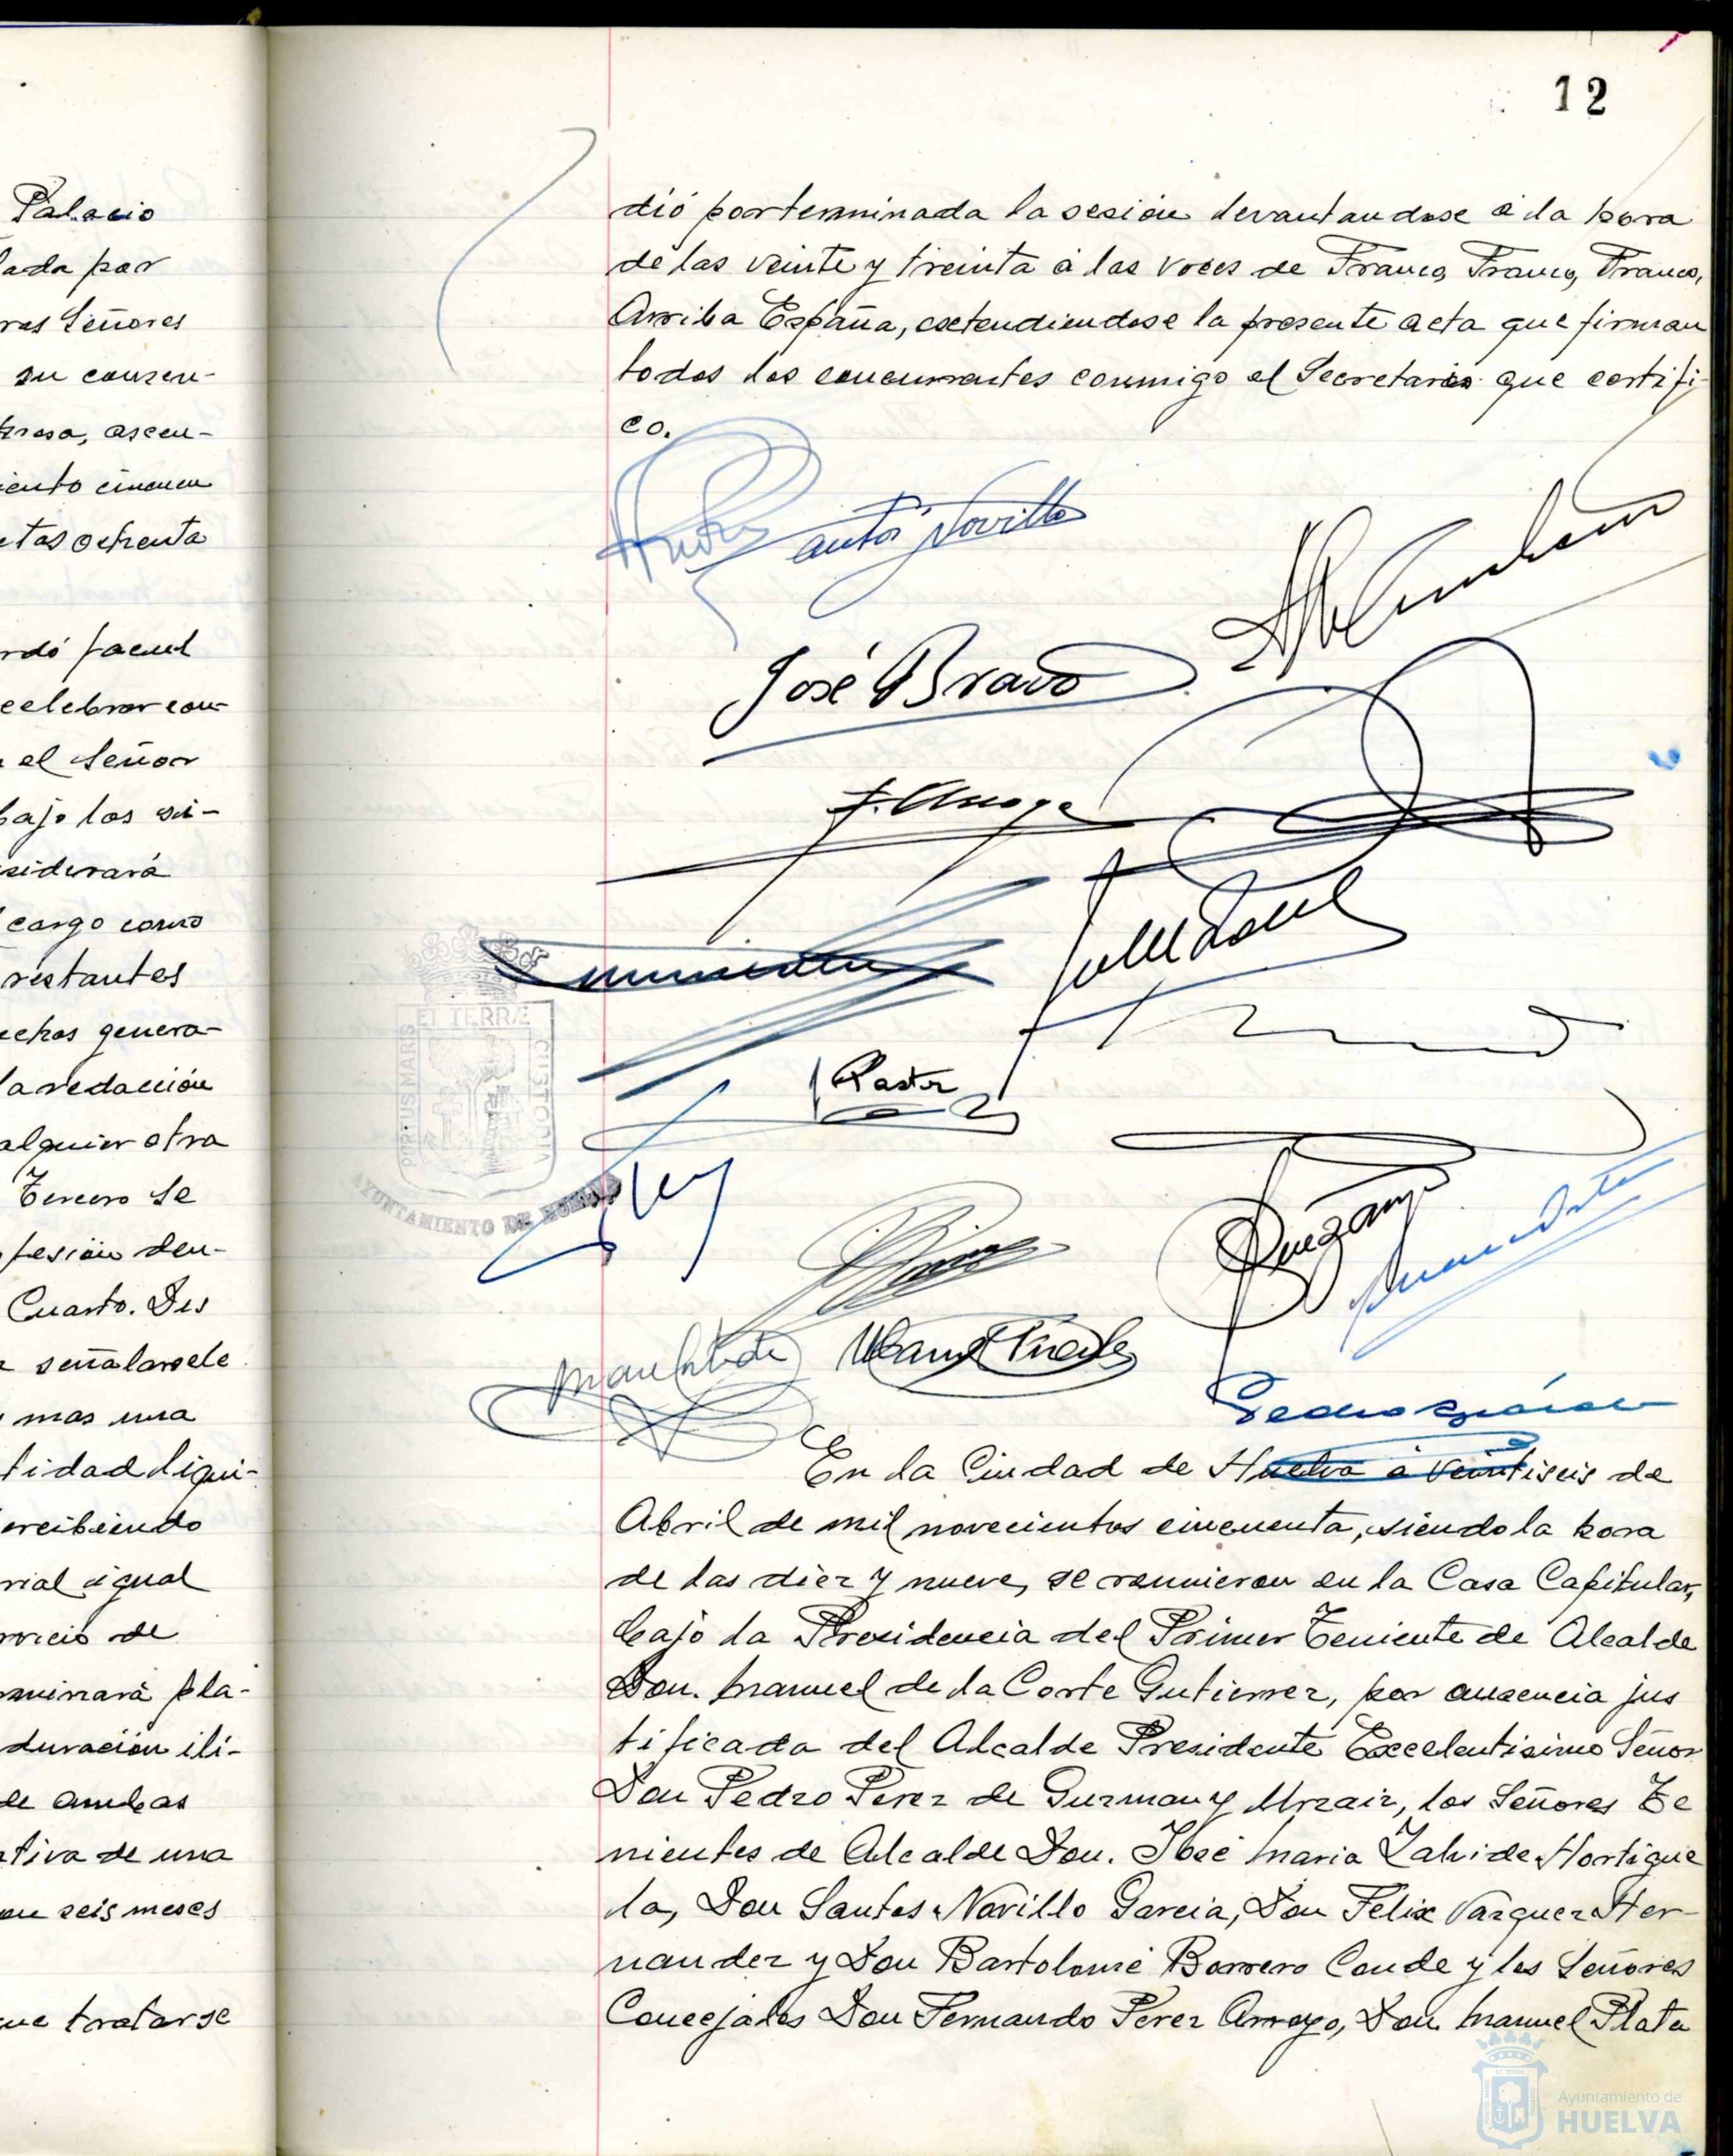 Palacio
lada por
ras Señores
su consen-
presa, ascen-
ciento cincuen
etas ochenta
rdó facul
celebrar con-
el Señor
bajo las si-
nsiderará
cargo como
restantes
echos genera-
la redacción
alquier otra
Tercero Se
fesión den-
Cuarto. Des
señalarsele
mas una
tidad liqui-
ercibiendo
rial igual
rvicio de
minará pla-
duración ili-
de ambas
tiva de una
seis meses
que tratarse
12
dió por terminada la sesión levantandose á la hora
de las veinte y treinta á las voces de Franco, Franco, Franco,
Arriba España, extendiendose la presente acta que firman
todos los concurrentes conmigo el Secretario que certifi-
co.
Santos Novillo
José Bravo
F. Arroyo
Pastor
ET TERRÆ
PORTUS MARIS
CUSTODIA
AYUNTAMIENTO DE HUELVA
En la Ciudad de Huelva á veintiseis de
Abril de mil novecientos cincuenta, siendo la hora
de las diez y nueve, se reunieron en la Casa Capitular,
bajo la Presidencia del Primer Teniente de Alcalde
Don. Manuel de la Corte Gutierrez, por ausencia jus
tificada del Alcalde Presidente Excelentisimo Señor
Don Pedro Perez de Guzman y Urzaiz, los Señores Te
nientes de Alcalde Don. José Maria Zalvide Hortigue
la, Don Santos Novillo Garcia, Don Felix Vazquez Her-
nandez y Don Bartolomé Borrero Conde y los Señores
Concejales Don Fernando Perez Arroyo, Don. Manuel Plata
Ayuntamiento de
HUELVA